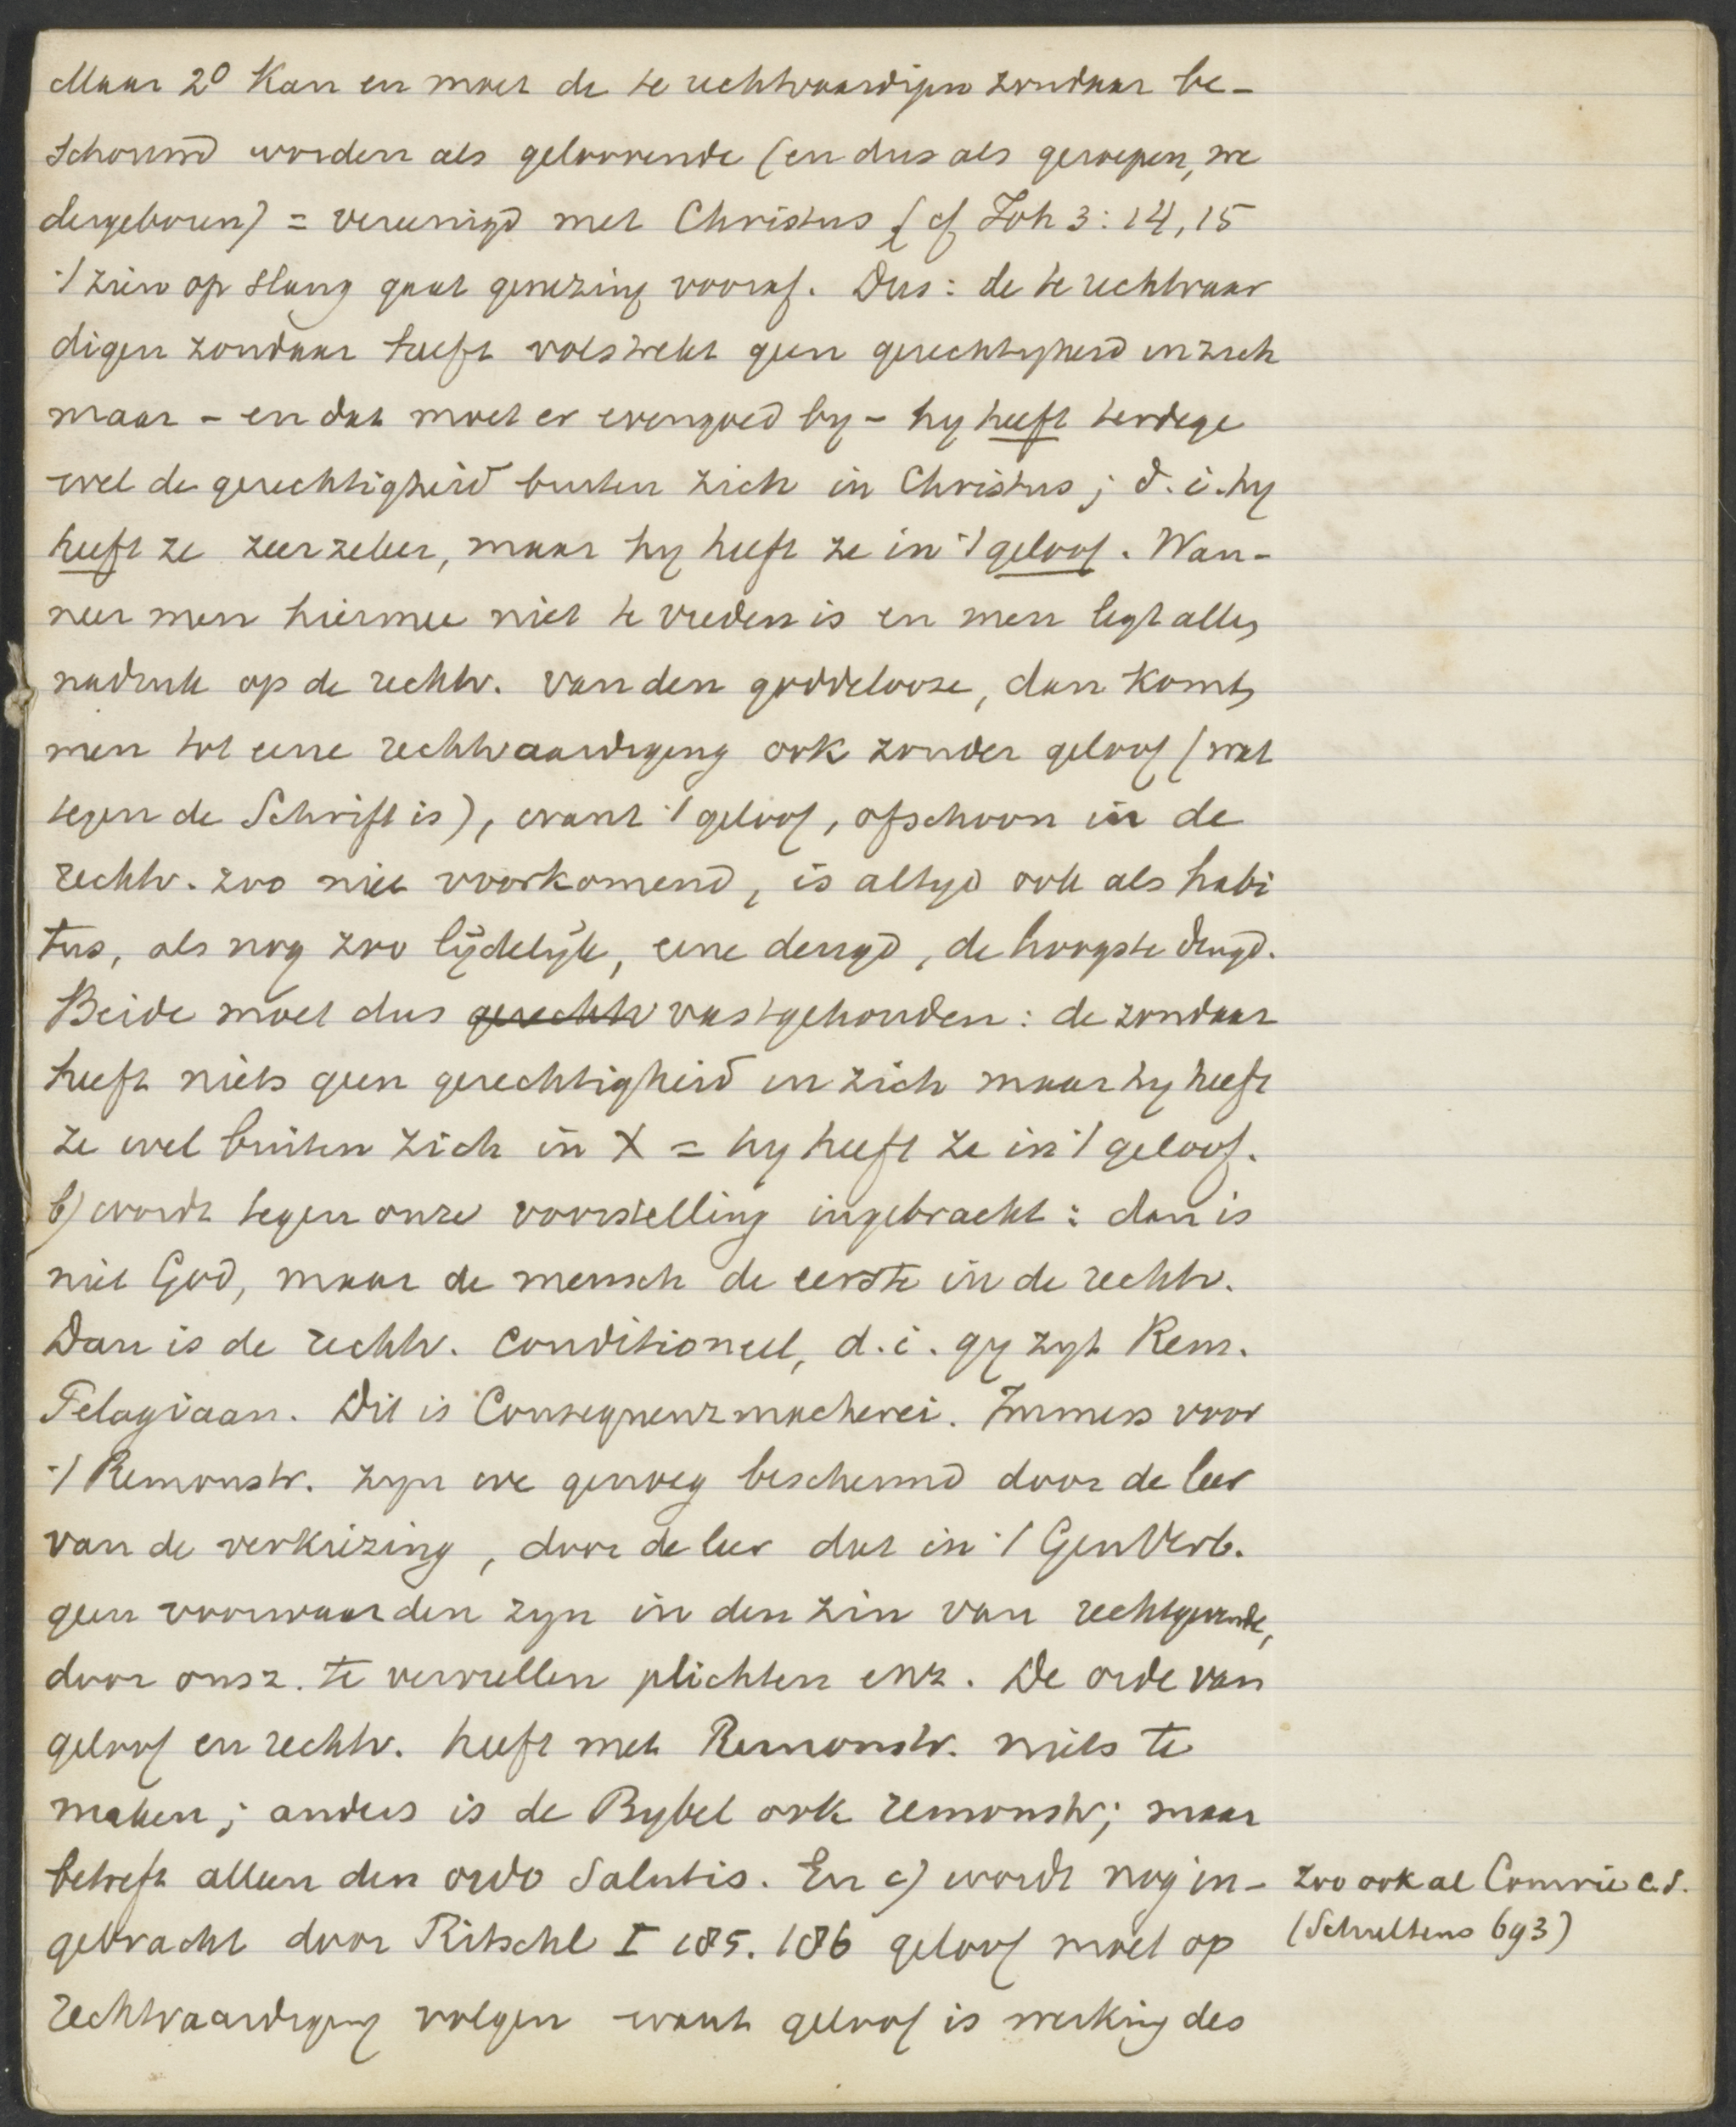 Maar 2° Kan en moet de te rechtvaardigen zondaar be-
schouwd worden als geloovende (en dus als geroepen, we
dergeboren) = vereenigd met Christus (cf Joh 3:14,15
't zien op slang gaat genezing vooraf. Dus: de te rechtvaar
digen zondaar heeft volstrekt geen gerechtigheid in zich
maar – en dat moet er evengoed by – hy heeft terdege
wel de gerechtigheid buiten zich in Christus; d.i. hy
heeft ze zeer zeker, maar hy heeft ze in 't geloof. Wan-
neer men hiermee niet te vreden is en men legt allen
nadruk op de rechtv. van den goddelooze, dan komt
men tot eene rechtvaardiging ook zonder geloof (wat
tegen de Schrift is), want 't geloof, ofschoon in de
rechtv. zoo niet voorkomend, is altyd ook als habi
tus, als nog zoo lijdelijk, eene deugd, de hoogste deugd.
Beide moet dus gerechtv vastgehouden: de zondaar
heeft niets geen gerechtigheid in zich maar hy heeft
ze wel buiten zich in X = hy heeft ze in 't geloof.
b) wordt tegen onze voorstelling ingebracht: dan is
niet God, maar de mensch de eerste in de rechtv.
Dan is de rechtv. conditioneel, d.i. gy zyt Rem.
Pelagiaan. Dit is Consequenzmacherei. Immers voor
't Remonstr. zyn we genoeg beschermd door de leer
van de verkiezing, door de leer dat in 't GenVerb.
geen voorwaarden zyn in den zin van rechtgevende,
door onsz. te vervullen plichten enz. De orde van
geloof en rechtv. heeft met Remonstr. niets te
maken; anders is de Bybel ook remonstr; maar
betreft alleen den ordo Salutis. En c) wordt nog in-
gebracht door Ritschl I 185. 186 geloof moet op
rechtvaardiging volgen want geloof is werking des
zoo ook al Comrie e.s.
(Schultens 693)